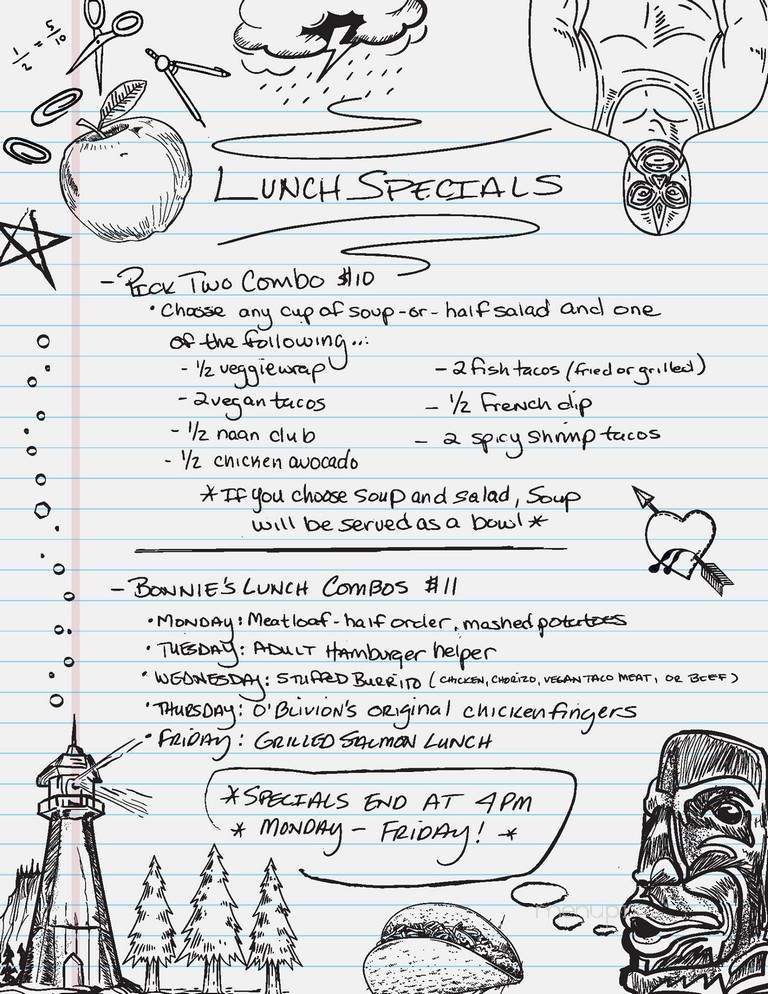 1/2 = 5/10
LUNCH SPECIALS
- PICK TWO COMBO $10
• Choose any cup of soup -or- half salad and one
of the following...
- 1/2 veggie wrap
- 2 fish tacos (fried or grilled)
- 2 vegan tacos
- 1/2 French dip
- 1/2 naan club
- 2 spicy shrimp tacos
- 1/2 chicken avocado
*If you choose soup and salad, soup
will be served as a bowl*
- BONNIE'S LUNCH COMBOS $11
• MONDAY: Meatloaf - half order, mashed potatoes
• TUESDAY: ADULT Hamburger helper
• WEDNESDAY: STUFFED BURRITO (CHICKEN, CHORIZO, VEGAN TACO MEAT, OR BEEF)
• THURSDAY: O'BLIVION'S original chicken fingers
• FRIDAY: GRILLED SALMON LUNCH
*SPECIALS END AT 4PM
* MONDAY - FRIDAY! *